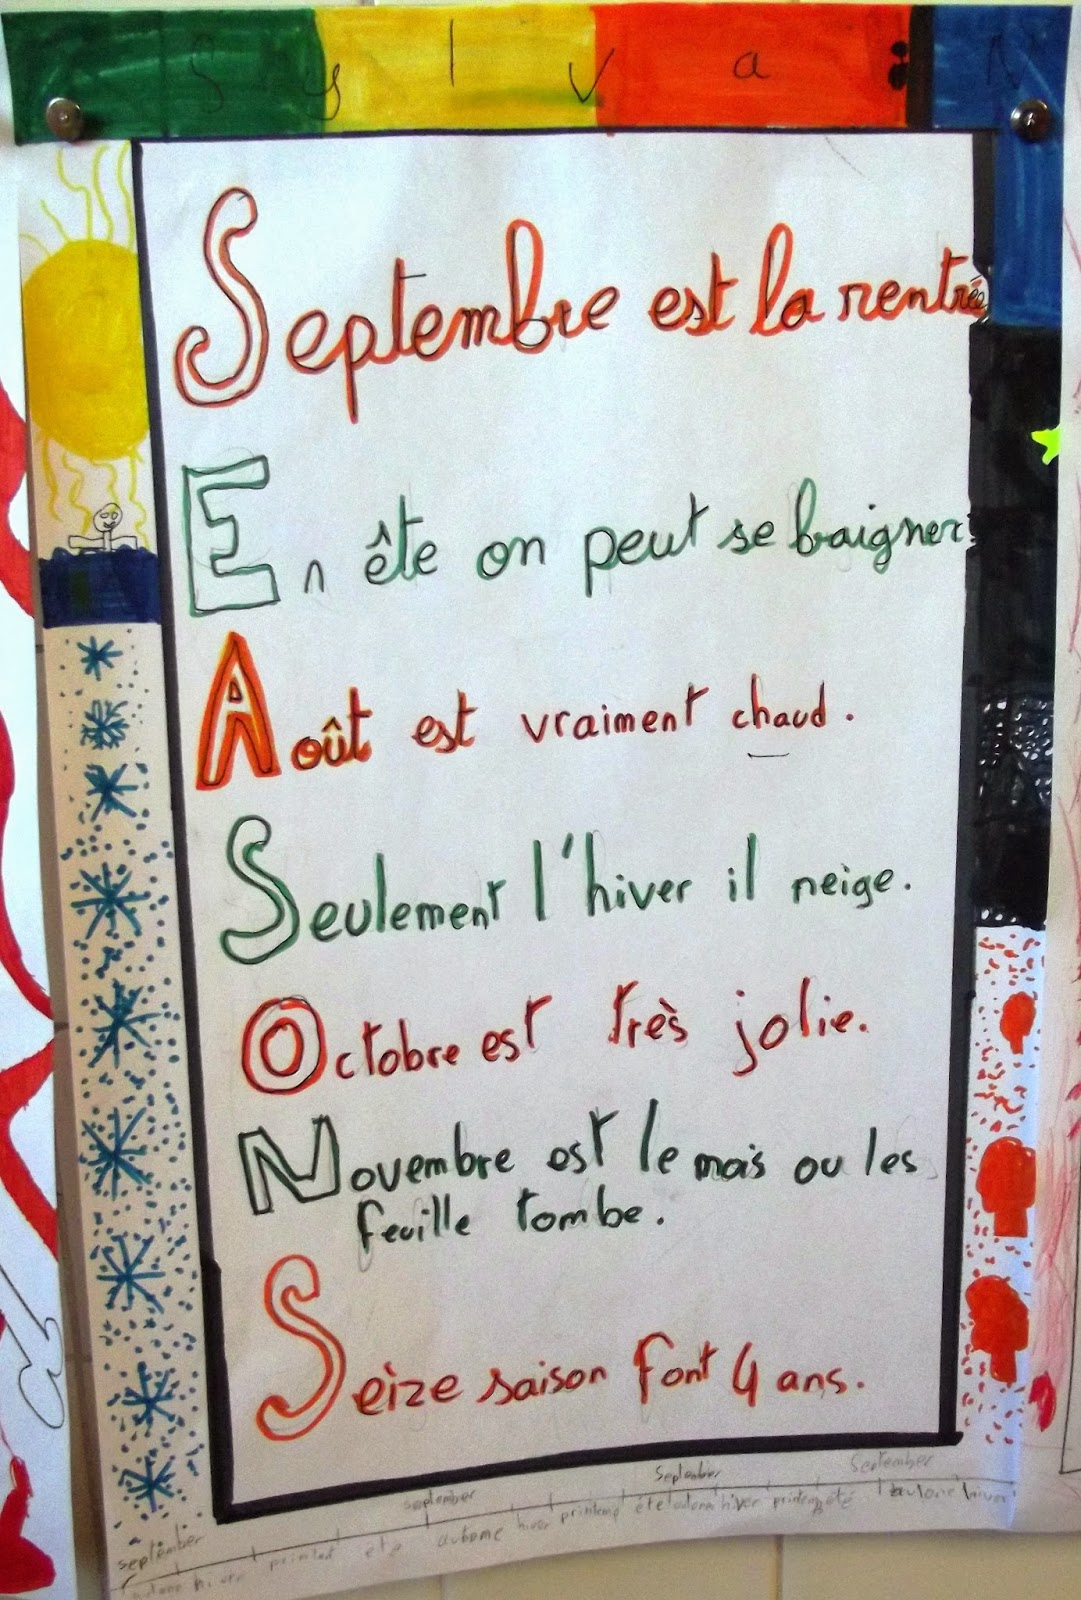 Sylvain
Septembre est la rentrée
En ête on peut se baigner.
Août est vraiment chaud.
Seulement l'hiver il neige.
Octobre est très jolie.
Novembre est le mois ou les
feuille tombe.
Seize saison font 4 ans.
september september september september
hiver printemp été automne hiver printemp été automne hiver printemp été hiver